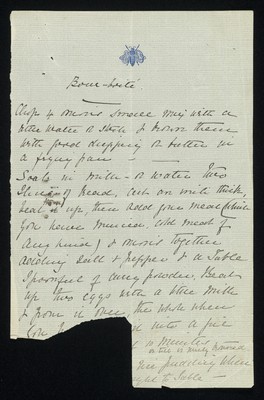 Bour-Boité
Chop 4 onions small mix with a
little water or stock & brown them
with good dripping or butter in
a frying pan —
Soak in milk or water two
slices of bread, cut an inch thick,
beat it up, then add your meat which
you have minced (cold meat of
any kind) & onions together
adding salt & pepper & a table
spoonful of curry powder. Beat
up two eggs with a little milk
& pour it over the whole when
you it into a pie
minutes
or till it is nicely browned
pudding when
to table —